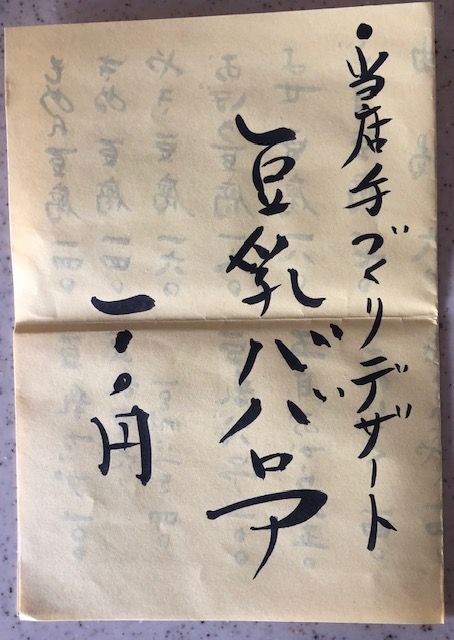 ・当店手づくりデザート
豆乳ババロア
一〇〇円